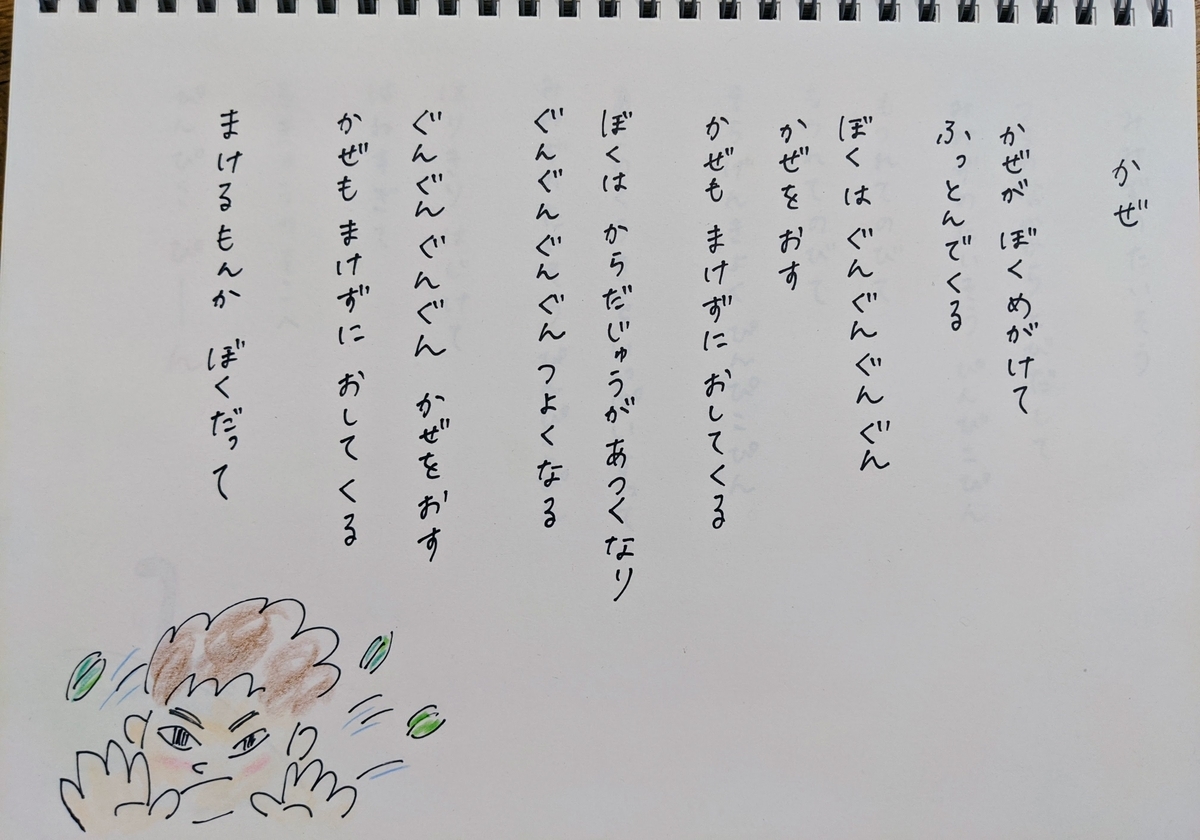 かぜ
かぜが ぼくめがけて
ふっとんでくる
ぼくは ぐんぐんぐんぐん
かぜを おす
かぜも まけずに おしてくる
ぼくは からだじゅうが あつくなり
ぐんぐんぐんぐん つよくなる
ぐんぐんぐんぐん かぜをおす
かぜも まけずに おしてくる
まけるもんか ぼくだって